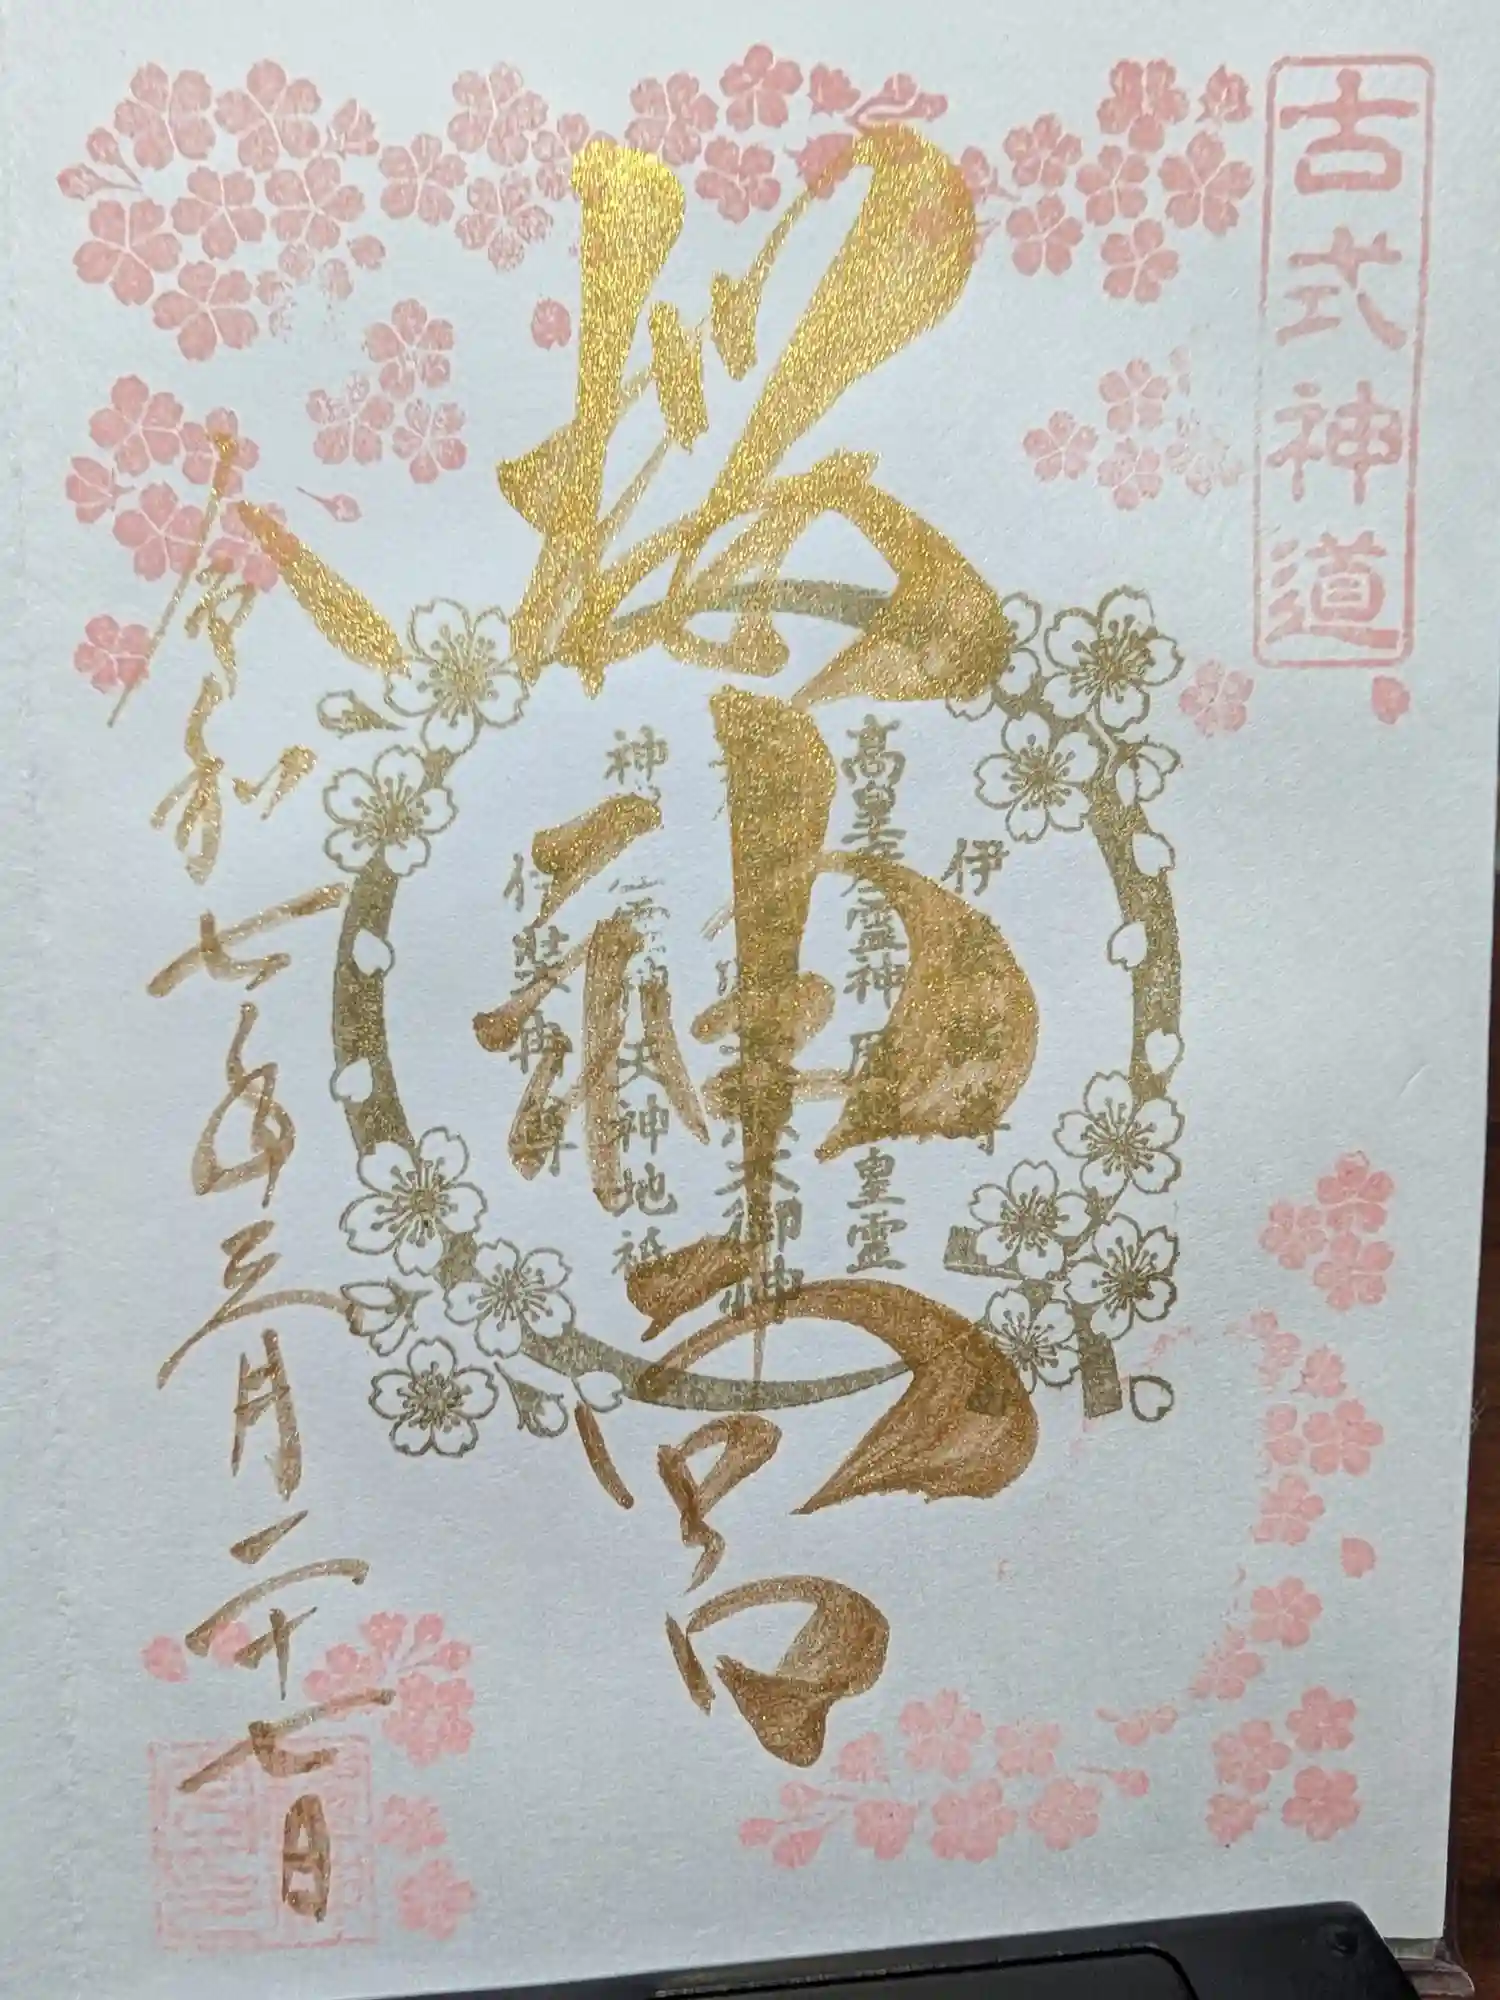 古式神道
桜神宮
伊
高皇産霊神 歴 皇霊
大御神
神 霊神 天神地祇
伊弉冉尊
令和七年三月二十七日